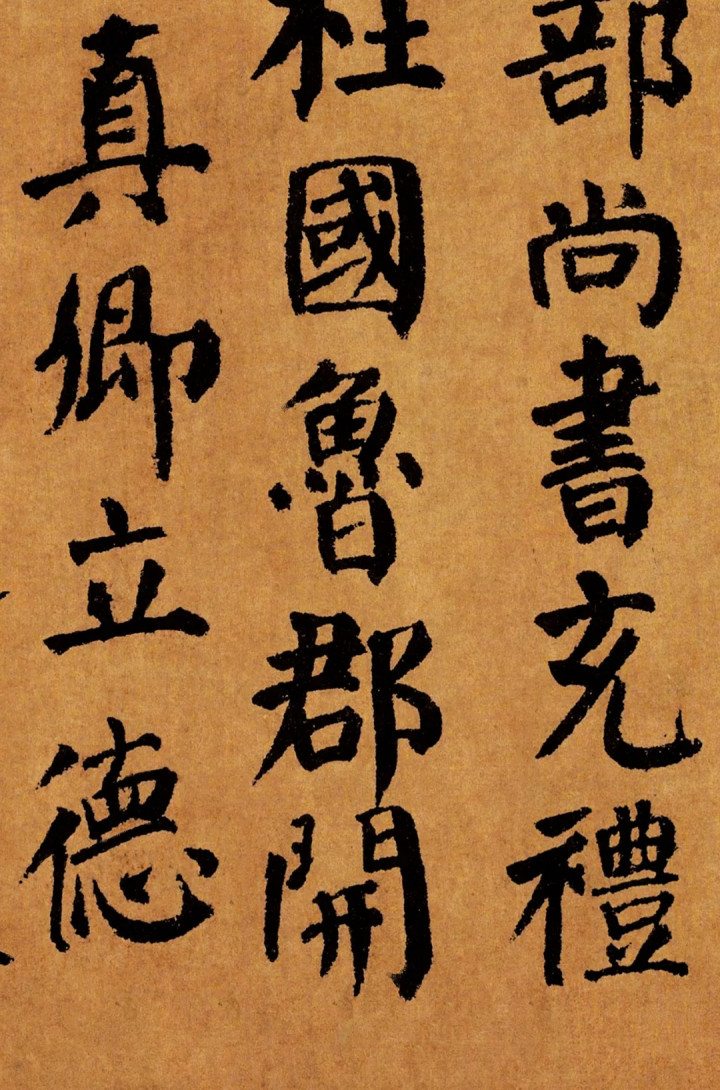 部尚書充禮
柱國魯郡開
真卿立德